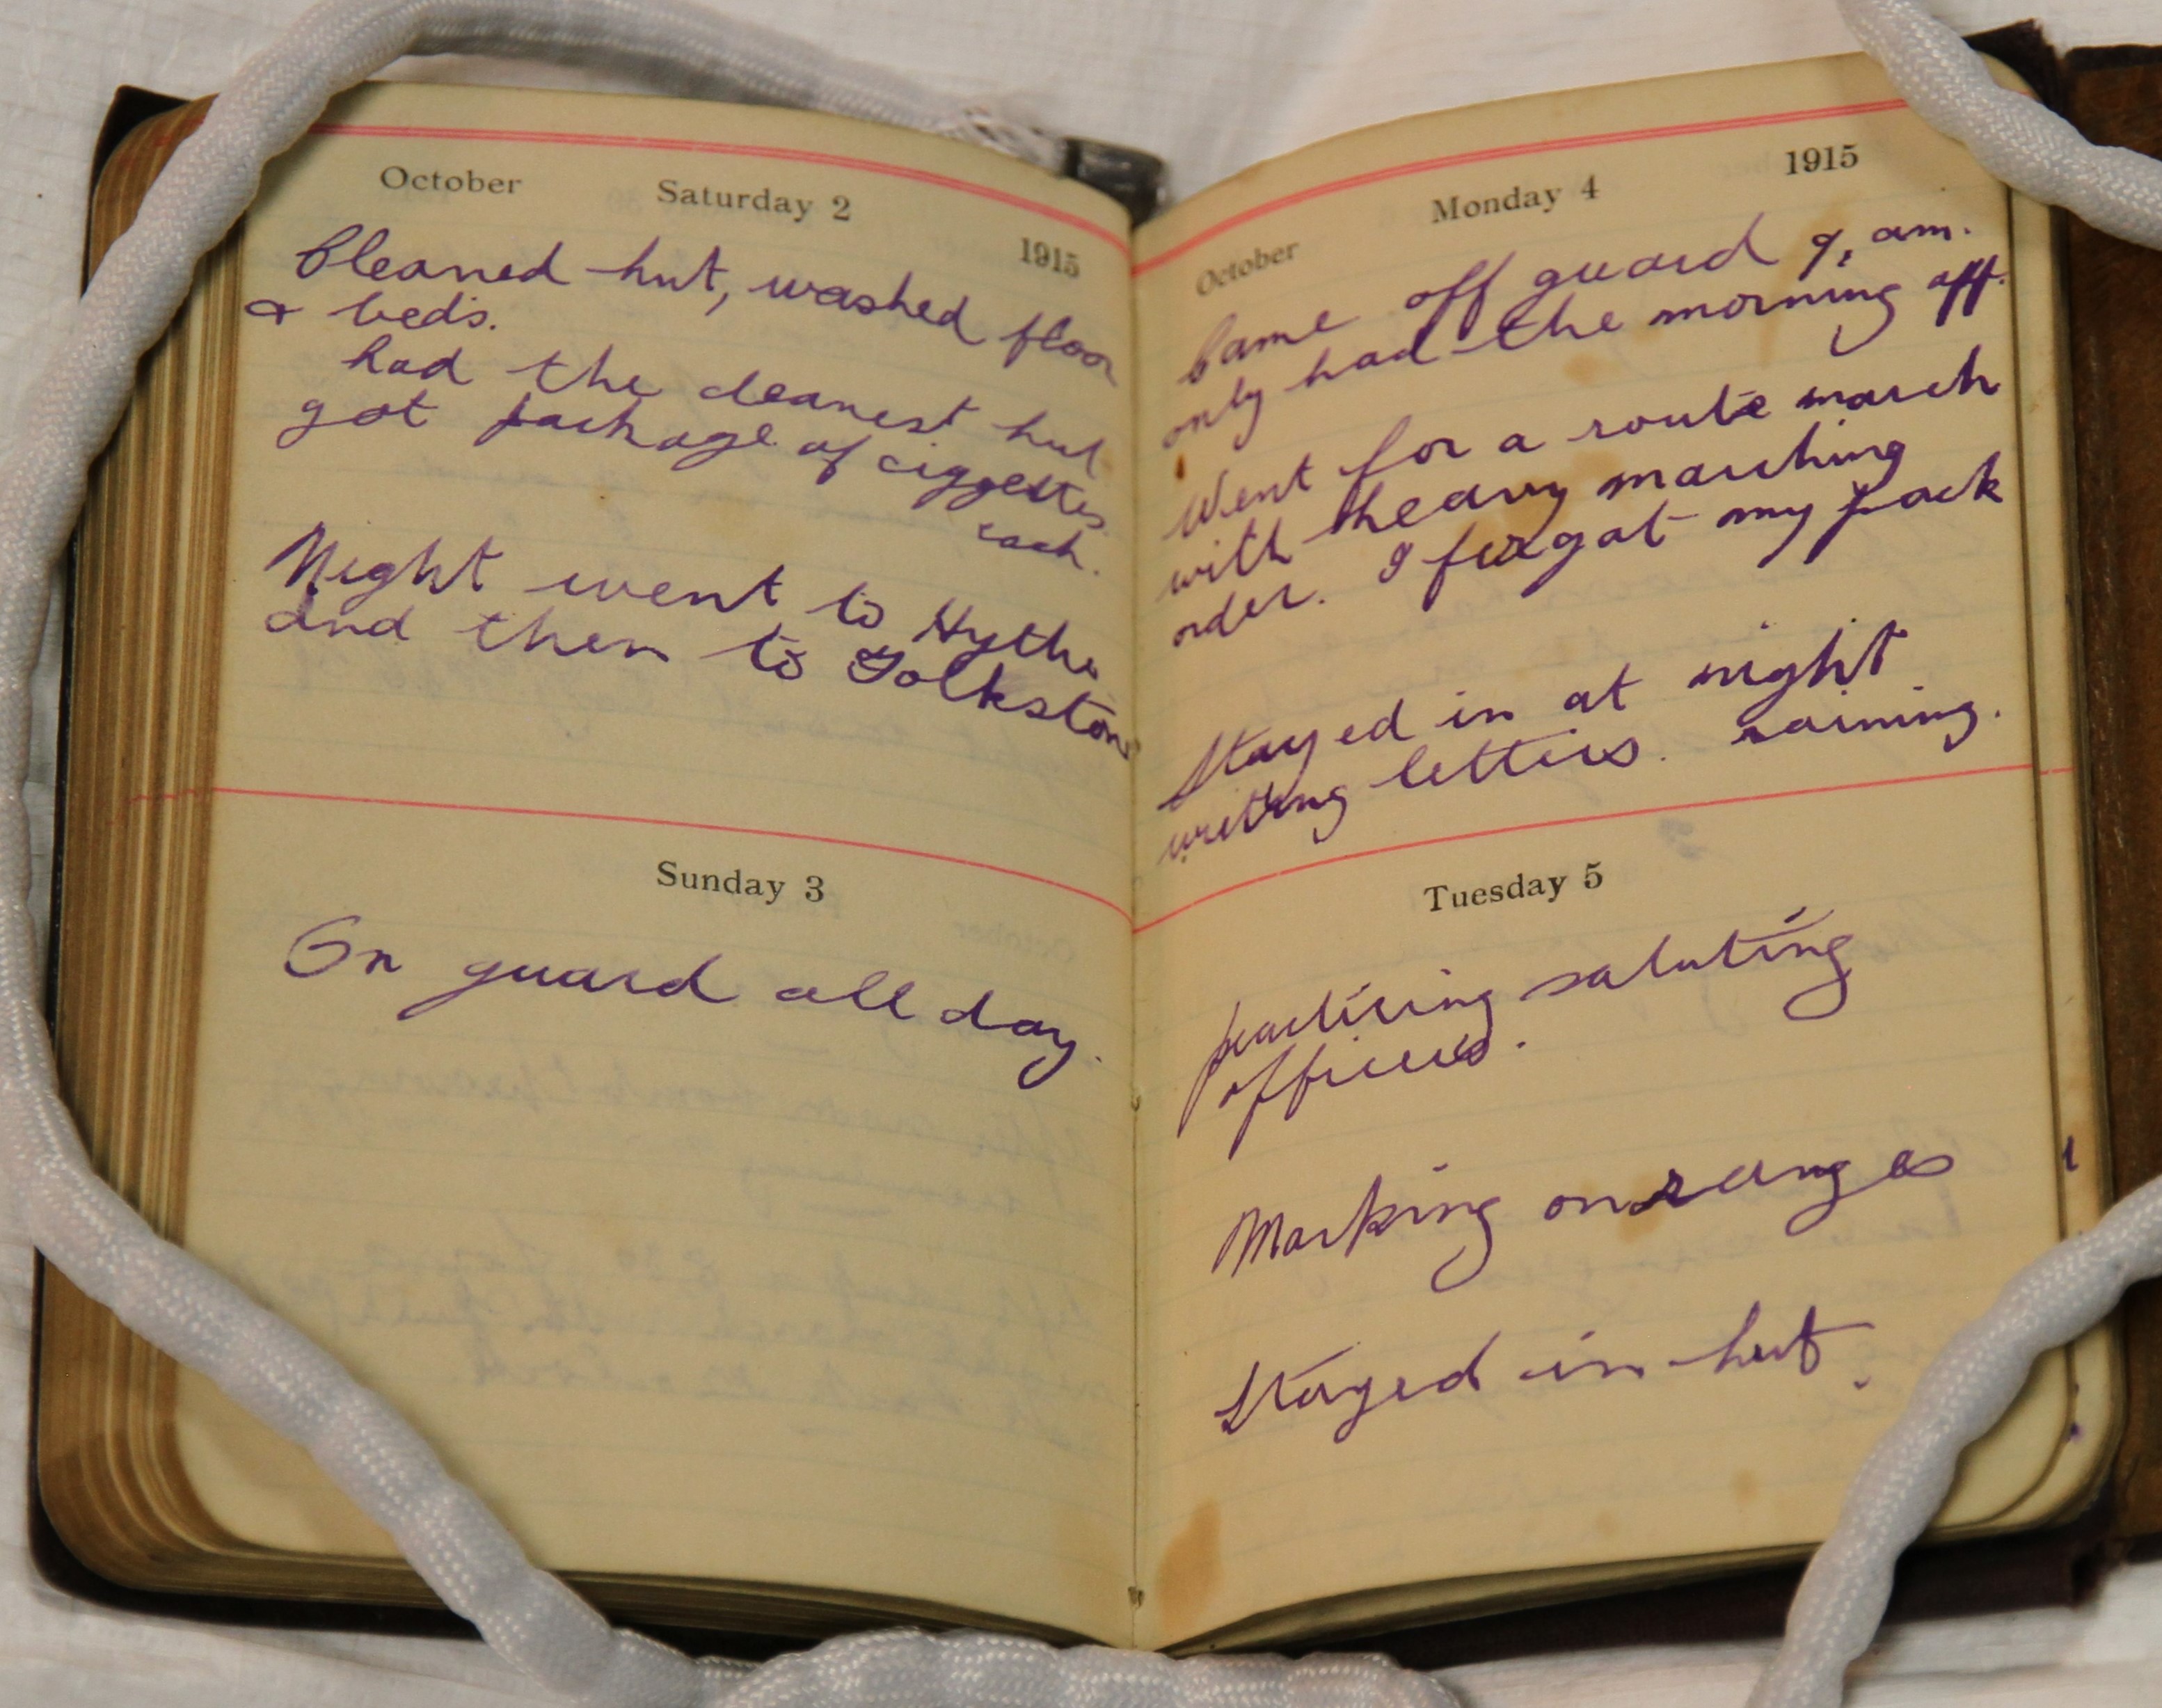 October Saturday 2 1915
Cleaned hut, washed floor
& beds.
had the cleanest hut
got package of ciggettes
each.
Night went to Hythe
and then to Folkstone
Sunday 3
On guard all day.
October Monday 4 1915
Came off guard 9, am.
only had the morning off.
Went for a route march
with heavy marching
order. I forgot my pack
Stayed in at night
writing letters. raining.
Tuesday 5
practising saluting
officers.
Marking on ranges
Stayed in hut.